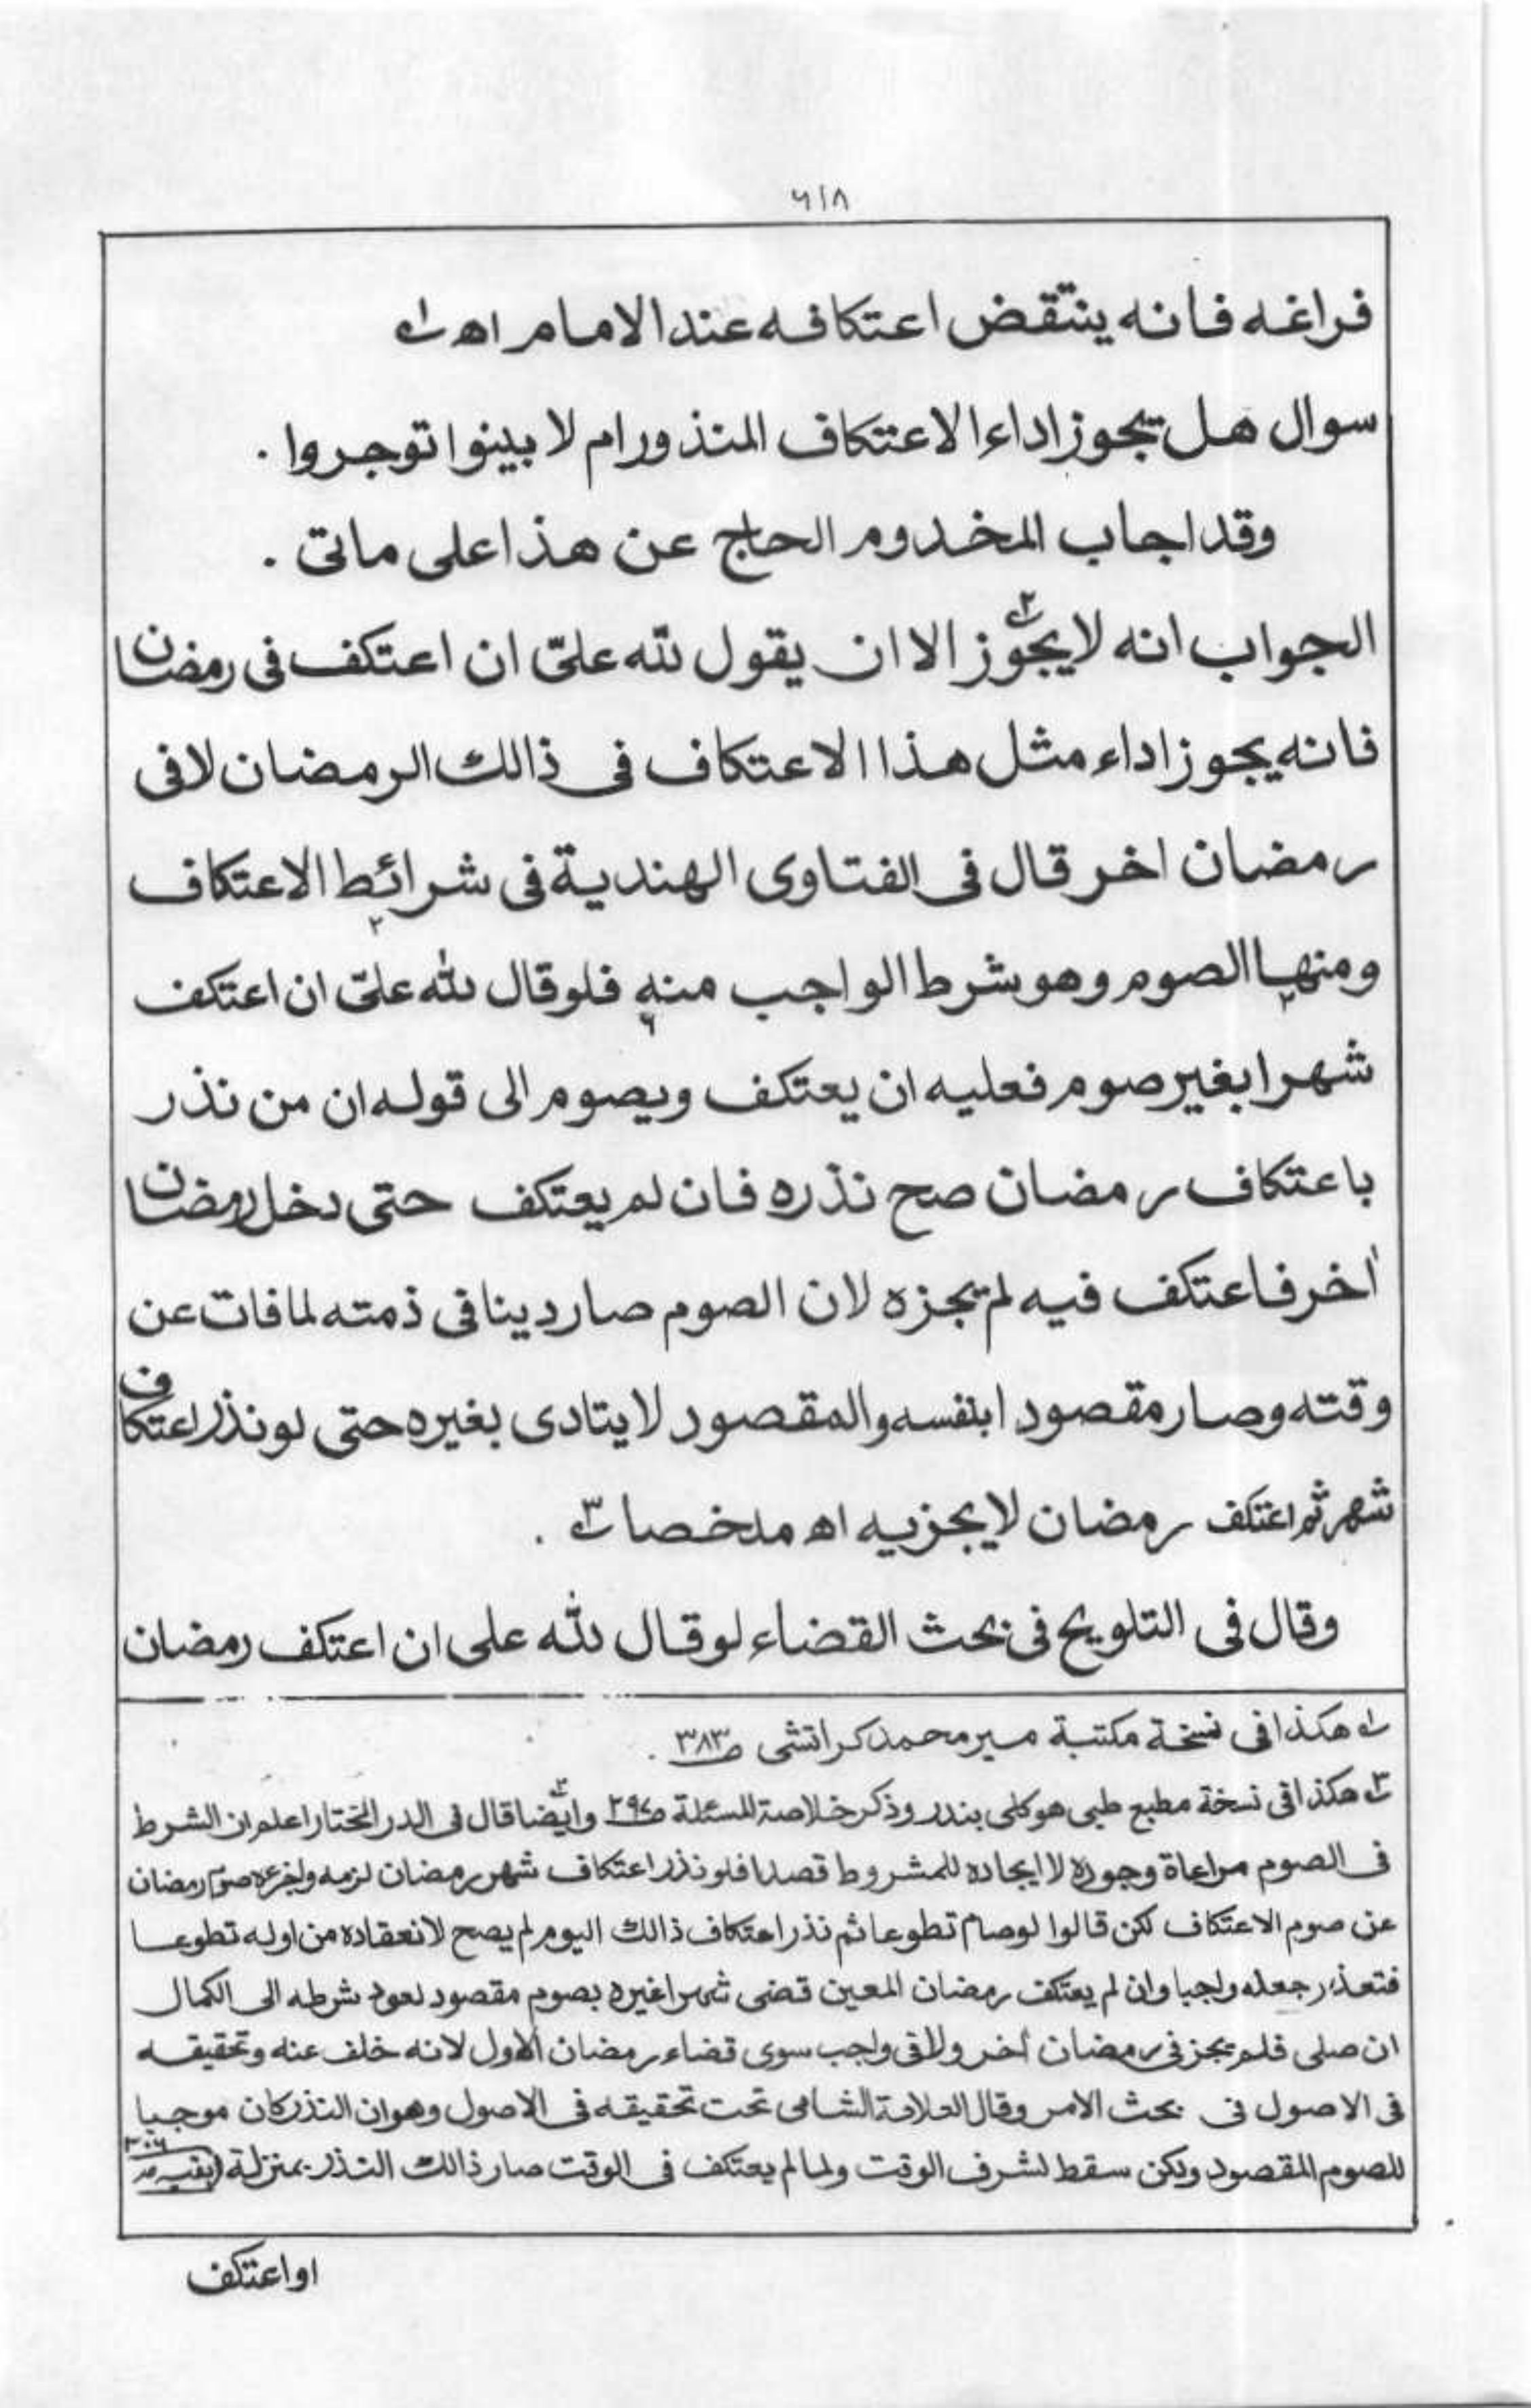 ۶۱۸
فراغه فانه ينتقض اعتكافه عند الامام اه ؂۱
سوال هل يجوز اداء الاعتكاف المنذور ام لا بينوا توجروا .
وقد اجاب المخدوم الحاج عن هذا على ماتى .
الجواب انه لا يجوز ؂۲ الا ان يقول لله علىّ ان اعتكف فى رمضان
فانه يجوز اداء مثل هذا الاعتكاف فى ذالك الرمضان لا فى
رمضان اخر قال فى الفتاوى الهندية فى شرائط الاعتكاف
ومنها الصوم وهو شرط الواجب منه فلو قال لله علىّ ان اعتكف
شهرا بغير صوم فعليه ان يعتكف ويصوم الى قوله ان من نذر
باعتكاف رمضان صح نذره فان لم يعتكف حتى دخل رمضان
اخر فاعتكف فيه لم يجزه لان الصوم صار دينا فى ذمته لما فات عن
وقته وصار مقصودا بنفسه والمقصود لا يتادى بغيره حتى لو نذر اعتكاف
شهر ثم اعتكف رمضان لا يجزيه اه ملخصا ؂۳ .
وقال فى التلويح فى بحث القضاء لو قال لله على ان اعتكف رمضان
؂۱ هكذا فى نسخة مكتبة مير محمد كراتشى ص ۳۸۳ .
؂۲ هكذا فى نسخة مطبع طبى هوكلى بندر وذكر خلاصة المسئلة ص ۲۹۷ ؂۳ وايضا قال فى الدر المختار اعلم ان الشرط
فى الصوم مراعاة وجوده لا ايجاده للمشروط قصدا فلو نذر اعتكاف شهر رمضان لزمه واجزءه صوم رمضان
عن صوم الاعتكاف لكن قالوا لو صام تطوعا ثم نذر اعتكاف ذالك اليوم لم يصح لانعقاده من اوله تطوعا
فتعذر جعله واجبا وان لم يعتكف رمضان المعين قضى شهرا غيره بصوم مقصود لعود شرطه الى الكمال
ان صلى فلم يجز فى رمضان اخر ولا فى واجب سوى قضاء رمضان الاول لانه خلف عنه وتحقيقه
فى الاصول فى بحث الامر وقال العلامة الشامى تحت تحقيقه فى الاصول وهو ان النذر كان موجبا
للصوم المقصود ولكن سقط لشرف الوقت ولما لم يعتكف فى الوقت صار ذالك النذر بمنزلة (بقيه ص
او اعتكف